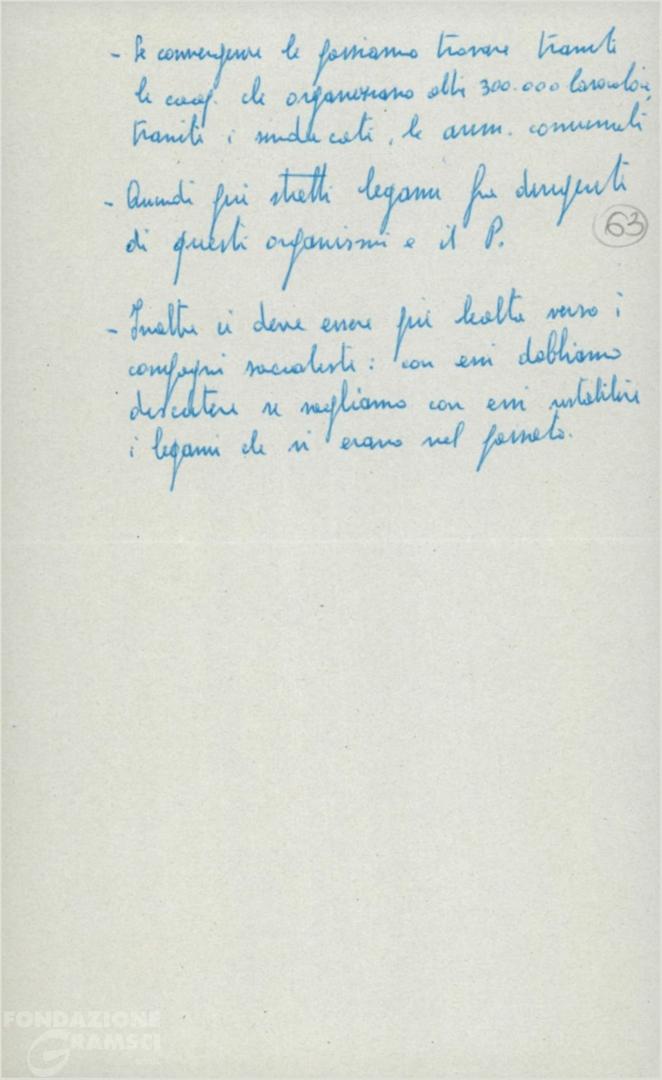 - Le convergenze le possiamo trovare tramite
le coop. che organizzano oltre 300.000 lavoratori,
tramite i sindacati, le amm. comunali
- Quindi più stretti legami fra dirigenti
di questi organismi e il P.
63
- Inoltre ci deve essere più lealtà verso i
compagni socialisti: con essi dobbiamo
discutere se vogliamo con essi ristabilire
i legami che vi erano nel passato.
FONDAZIONE
GRAMSCI